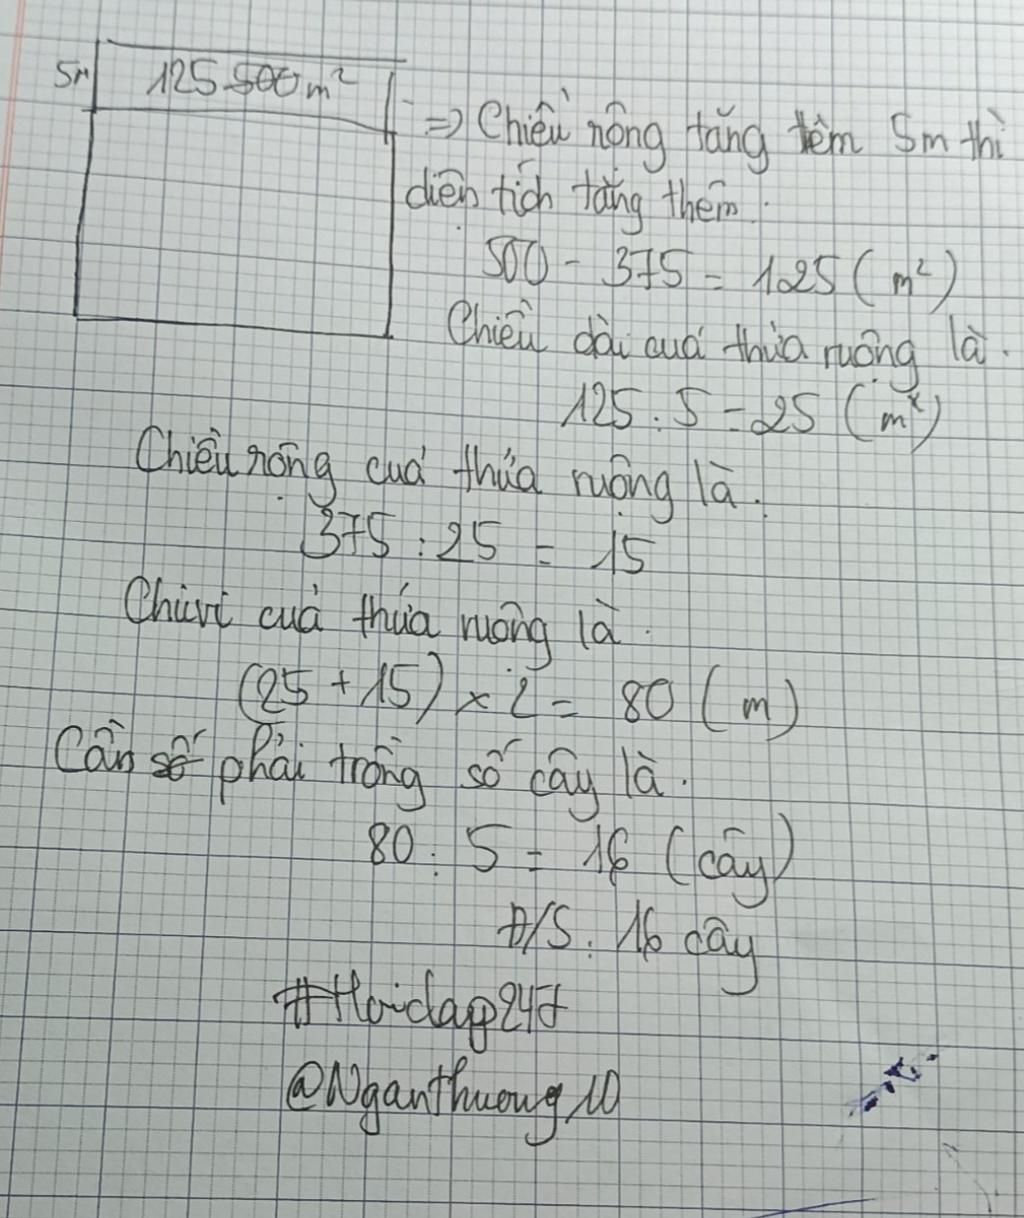 5m 125 500m²
=> Chiều rộng tăng têm 5m thì
diện tích tăng thêm.
500 - 375 = 125 (m²)
Chiều dài của thửa ruộng là.
125 : 5 = 25 (m)
Chiều rộng của thửa ruộng là.
375 : 25 = 15
Chu vi của thửa ruộng là.
(25 + 15) x 2 = 80 (m)
Cần số phải trồng số cây là.
80 : 5 = 16 (cây)
Đ/S : 16 cây
#Hoidap247
@Nganthuong10